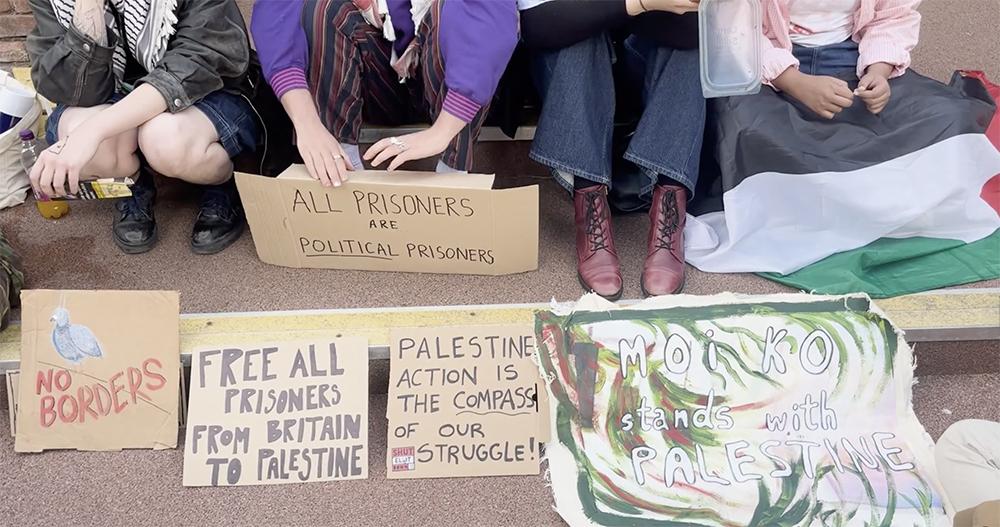 ALL PRISONERS
ARE
POLITICAL PRISONERS
NO
BORDERS
FREE ALL
PRISONERS
FROM BRITAIN
TO PALESTINE
PALESTINE
ACTION IS
THE COMPASS
OF OUR
STRUGGLE!
SHUT
ELBIT
DOWN
MOi KO
stands with
PALESTINE